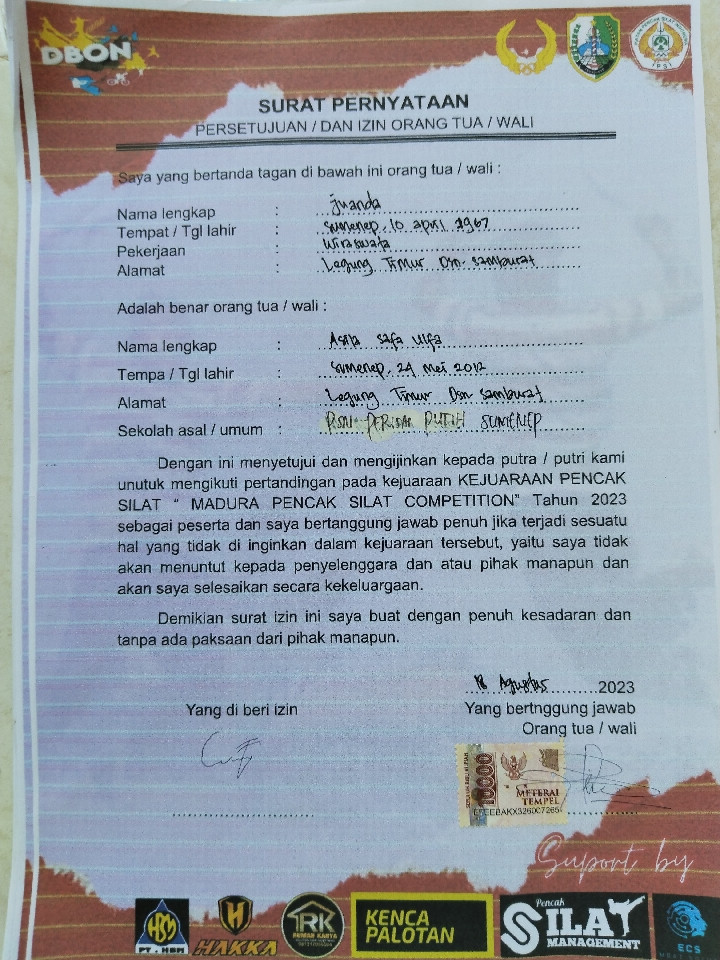 DBON
SURAT PERNYATAAN
PERSETUJUAN / DAN IZIN ORANG TUA / WALI
Saya yang bertanda tagan di bawah ini orang tua / wali :
Nama lengkap : Juanda
Tempat / Tgl lahir : Sumenep, 10 april 1967
Pekerjaan : Wiraswata
Alamat : Legung Timur Dsn. Samburat
Adalah benar orang tua / wali :
Nama lengkap : Asila Safa Ulfa
Tempa / Tgl lahir : Sumenep, 24 mei 2012
Alamat : Legung Timur Dsn Samburat
Sekolah asal / umum : PSN. PERISAI PUTIH SUMENEP
Dengan ini menyetujui dan mengijinkan kepada putra / putri kami
unutuk mengikuti pertandingan pada kejuaraan KEJUARAAN PENCAK
SILAT “ MADURA PENCAK SILAT COMPETITION” Tahun 2023
sebagai peserta dan saya bertanggung jawab penuh jika terjadi sesuatu
hal yang tidak di inginkan dalam kejuaraan tersebut, yaitu saya tidak
akan menuntut kepada penyelenggara dan atau pihak manapun dan
akan saya selesaikan secara kekeluargaan.
Demikian surat izin ini saya buat dengan penuh kesadaran dan
tanpa ada paksaan dari pihak manapun.
18 Agustus 2023
Yang di beri izin
Yang bertnggung jawab
Orang tua / wali
10000
METERAI
TEMPEL
Suport by
HSM
PT. HSM
HAKKA
RK
RUMAH KARYA
KENCA
PALOTAN
Pencak
SILAT
MANAGEMENT
ECS